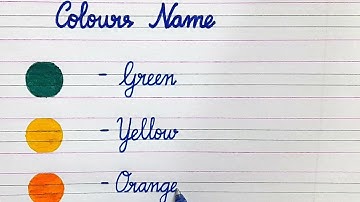 Colours Name
- Green
- Yellow
- Orange